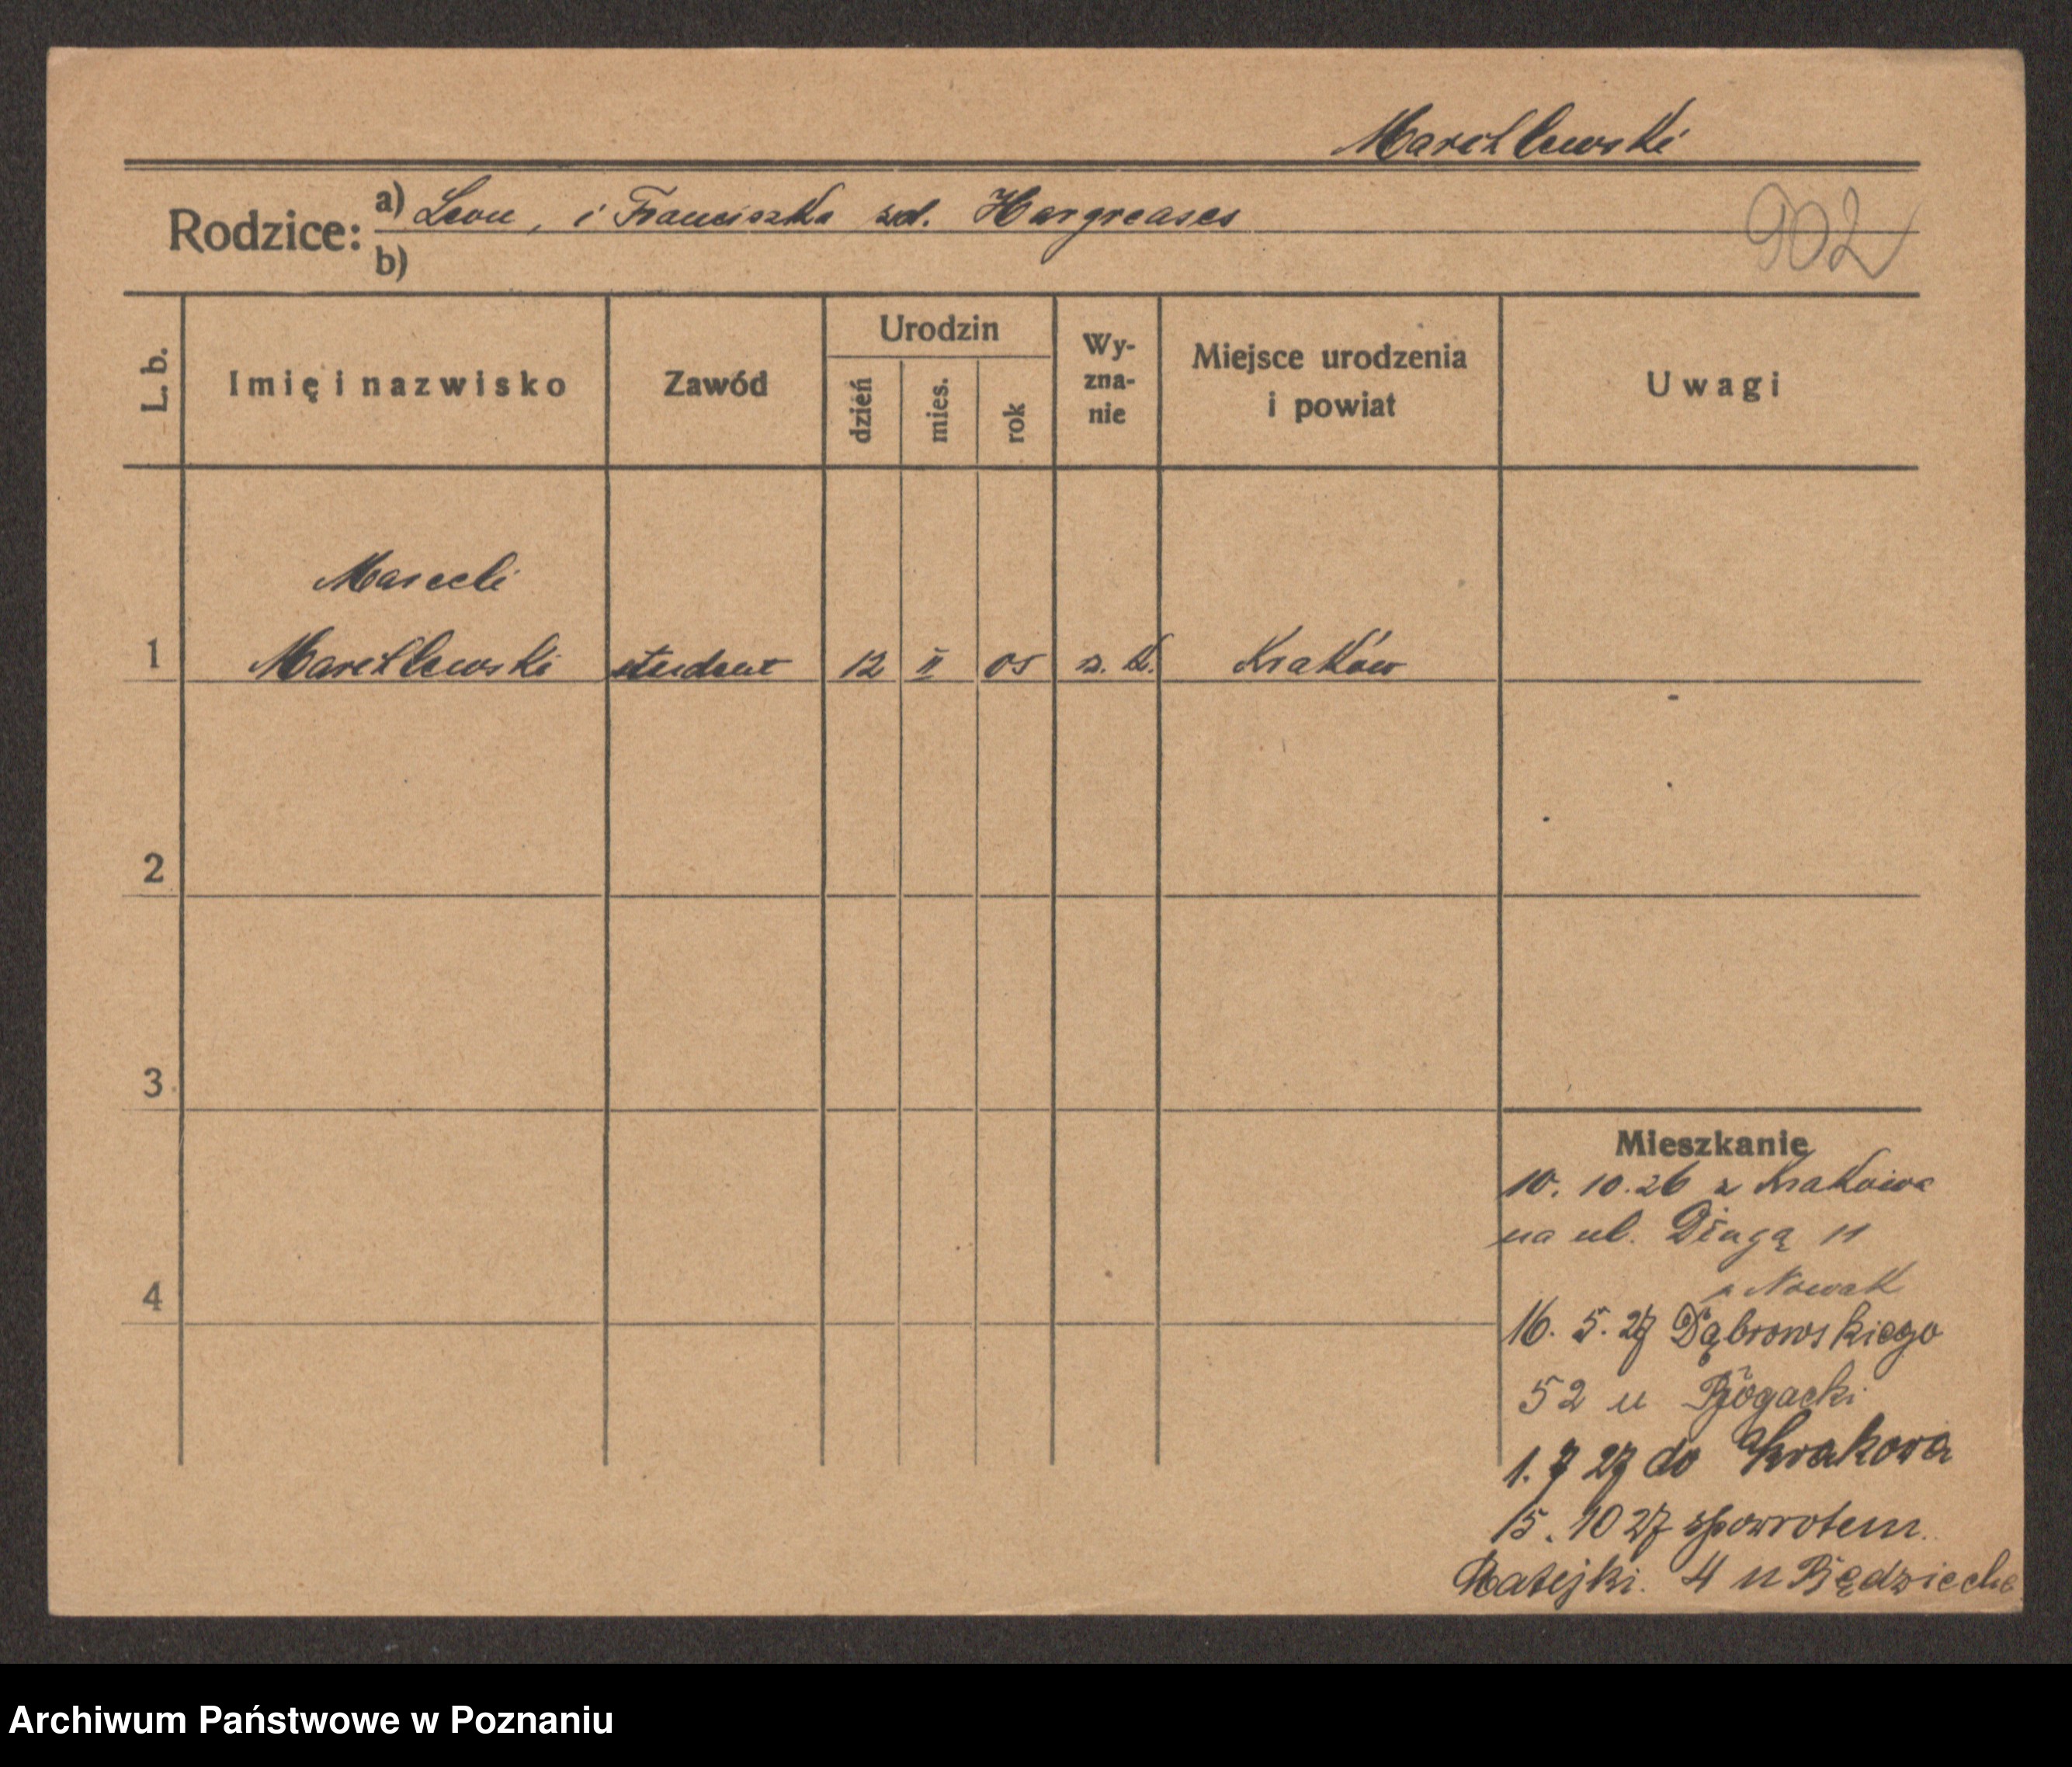 Marchlewski
Rodzice: a) Leon, i Franciszka zd. Hargreases
902
b)
L. b. Imię i nazwisko Zawód Urodzin dzień mies. rok Wy-zna-nie Miejsce urodzenia i powiat Uwagi
Marceli
1 Marchlewski student 12 II 05 rz. k. Kraków
2
3
Mieszkanie
10. 10. 26 z Krakowa
na ul. Długą 11
4
p Nowak
16. 5. 27 Dąbrowskiego
52 u Bogacki
1. 7 27 do Krakowa
15. 10 27 spowrotem.
Matejki. 4 u
Archiwum Państwowe w Poznaniu